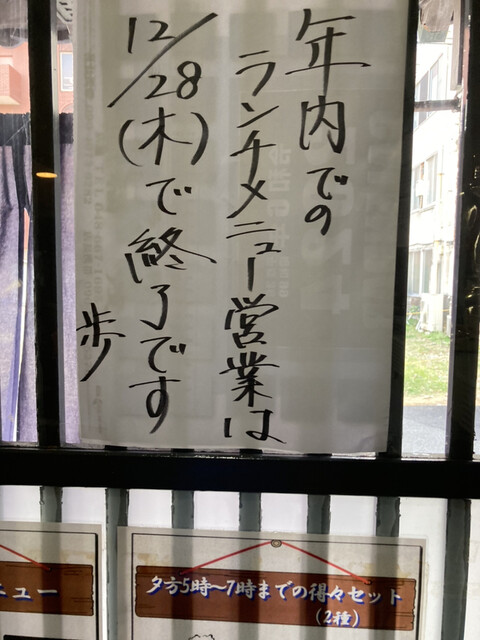 年内での
ランチメニュー営業は
12/28(木)で終了です
歩
ニュー
夕方5時〜7時までの得々セット
(2種)